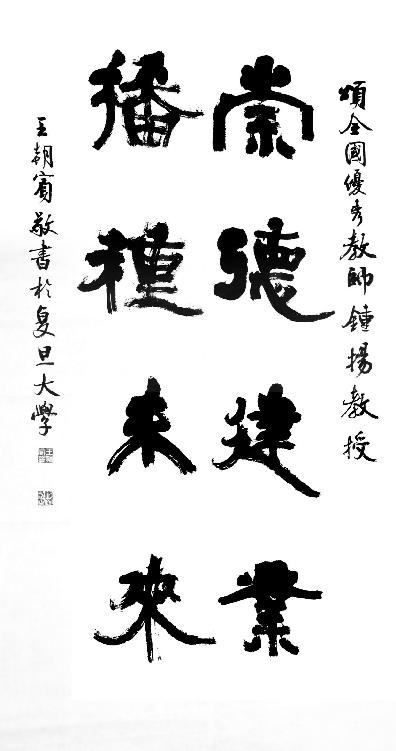 頌全國優秀教師鍾揚教授
崇德建業
播種未來
王朝賓敬書於复旦大學